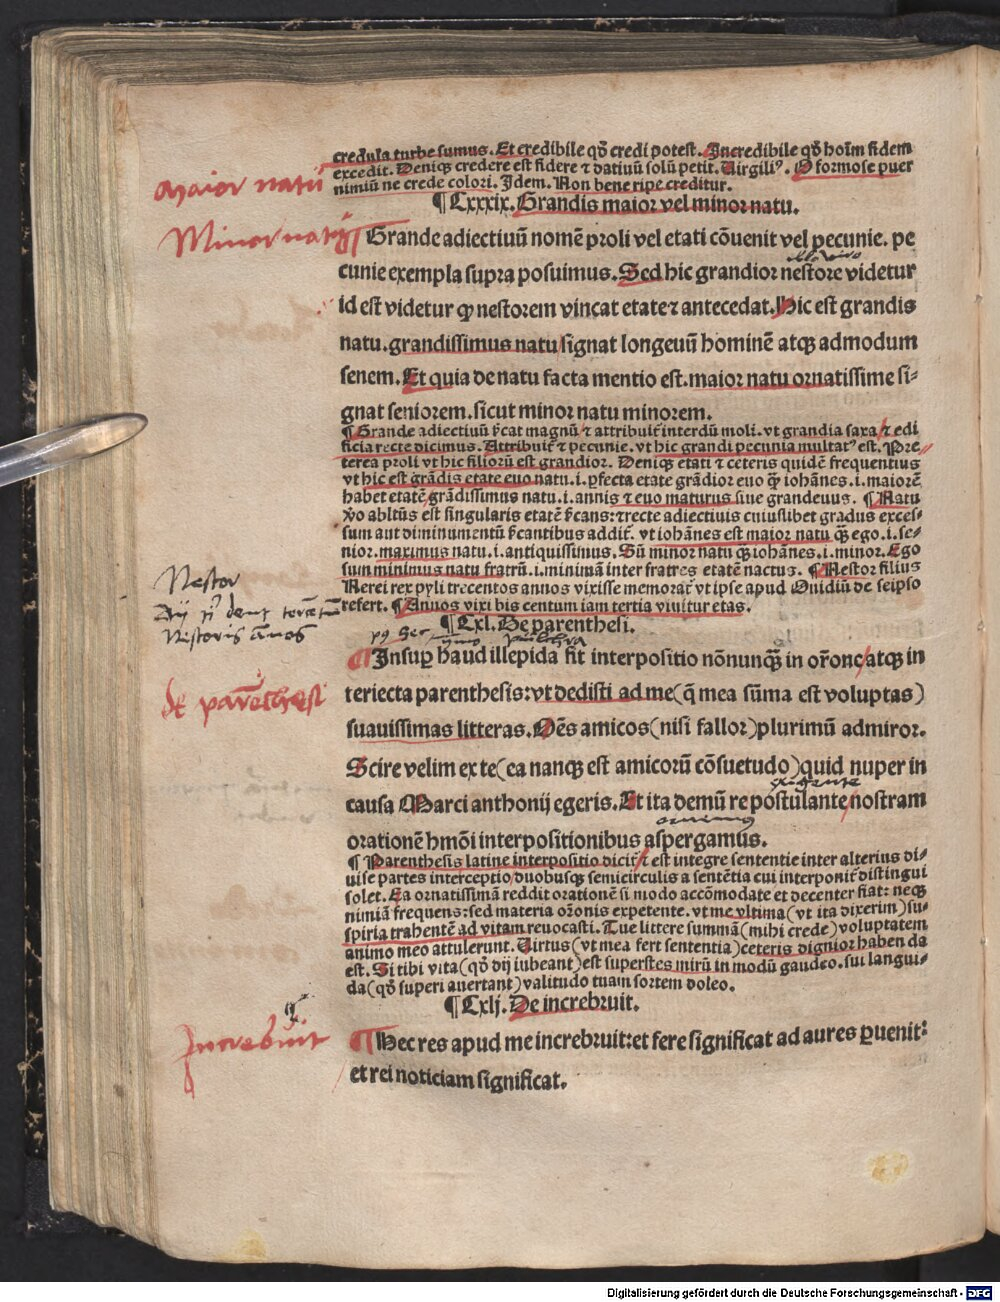 credula turbe sumus. Et credibile qď credi potest. Incredibile qď hoīm fidem
excedit. Deniqꝫ credere est fidere ⁊ datiuū solū petit. Uirgiliꝰ. O formose puer
nimiū ne crede colori. Idem. Non bene ripe creditur.
Maior natu
¶ Cxxxix. Grandis maior vel minor natu.
Minor natu
¶ Grande adiectiuū nomē proli vel etati cōuenit vel pecunie. pe
cunie exempla supra posuimus. Sed hic grandior nestore videtur
id est videtur ꝙ nestorem vincat etate ⁊ antecedat. Hic est grandis
natu. grandissimus natu signat longeuū hominē atqꝫ admodum
senem. Et quia de natu facta mentio est. maior natu ornatissime si⸗
gnat seniorem. sicut minor natu minorem.
¶ Grande adiectiuū ſ̄cat magnū/ ⁊ attribuit᷑ interdū moli. vt grandia saxa/ ⁊ edi
ficia recte dicimus. Attribuit᷑ ⁊ pecunie. vt hic grandi pecunia multatꝰ est. Pre⸗
terea proli vt hic filiorū est grandior. Deniqꝫ etati ⁊ ceteris quidē frequentius
vt hic est grādis etate euo natu. i. ꝑfecta etate grādior euo ꝙ̄ iohānes. i. maiorē
habet etatē grādissimus natu. i. annis ⁊ euo maturus siue grandeuus. ¶ Natu
v̊o abltūs est singularis etatē ſ̄cans: ⁊ recte adiectiuis cuiuslibet gradus exces⸗
sum aut diminumentū ſ̄cantibus addit᷑. vt iohānes est maior natu ꝙ̄ ego. i. se⸗
nior. maximus natu. i. antiquissimus. Sū minor natu ꝙ̄ iohānes. i. minor. Ego
sum minimus natu fratrū. i. minimā inter fratres etatē nactus. ¶ Nestor filius
Nerei rex pyli trecentos annos vixisse memorat᷑ vt ipse apud Ouidiū de seipso
refert. ¶ Annos vixi bis centum iam tertia viuitur etas.
Nestor
Nestoris annos
¶ Cxl. De parenthesi.
¶ Insuꝑ haud illepida fit interpositio nōnunqꝫ̄ in or̄one/ atqꝫ in
teriecta parenthesis: vt dedisti ad me (q̄ mea sūma est voluptas)
de parēthesi
suauissimas litteras. Oēs amicos (nisi fallor) plurimū admiror.
Scire velim ex te (ea nanqꝫ est amicorū cōsuetudo) quid nuper in
exigente
causa Marci anthonij egeris. Et ita demū re postulante/ nostram
orationē hmōi interpositionibus aspergamus.
¶ Parenthesis latine interpositio dicit᷑/ ⁊ est integre sententie inter alterius di⸗
uise partes interceptio/ duobusqꝫ semicirculis a sentētia cui interponit᷑ distingui
solet. Ea ornatissimā reddit orationē si modo accōmodate et decenter fiat: neqꝫ
nimiā frequens: sed materia or̄onis expetente. vt me vltima (vt ita dixerim) su⸗
spiria trahentē ad vitam reuocasti. Tue littere summā (mihi crede) voluptatem
animo meo attulerunt. Uirtus (vt mea fert sententia) ceteris dignior haben da
est. Si tibi vita (qď dij iubeant) est superstes mirū in modū gaudeo. sui langui⸗
da (qď superi auertant) valitudo tuam sortem doleo.
¶ Cxlj. De increbruit.
Increbuit
¶ Hec res apud me increbruit: et fere significat ad aures ꝑuenit:
et rei noticiam significat.
Digitalisierung gefördert durch die Deutsche Forschungsgemeinschaft - DFG